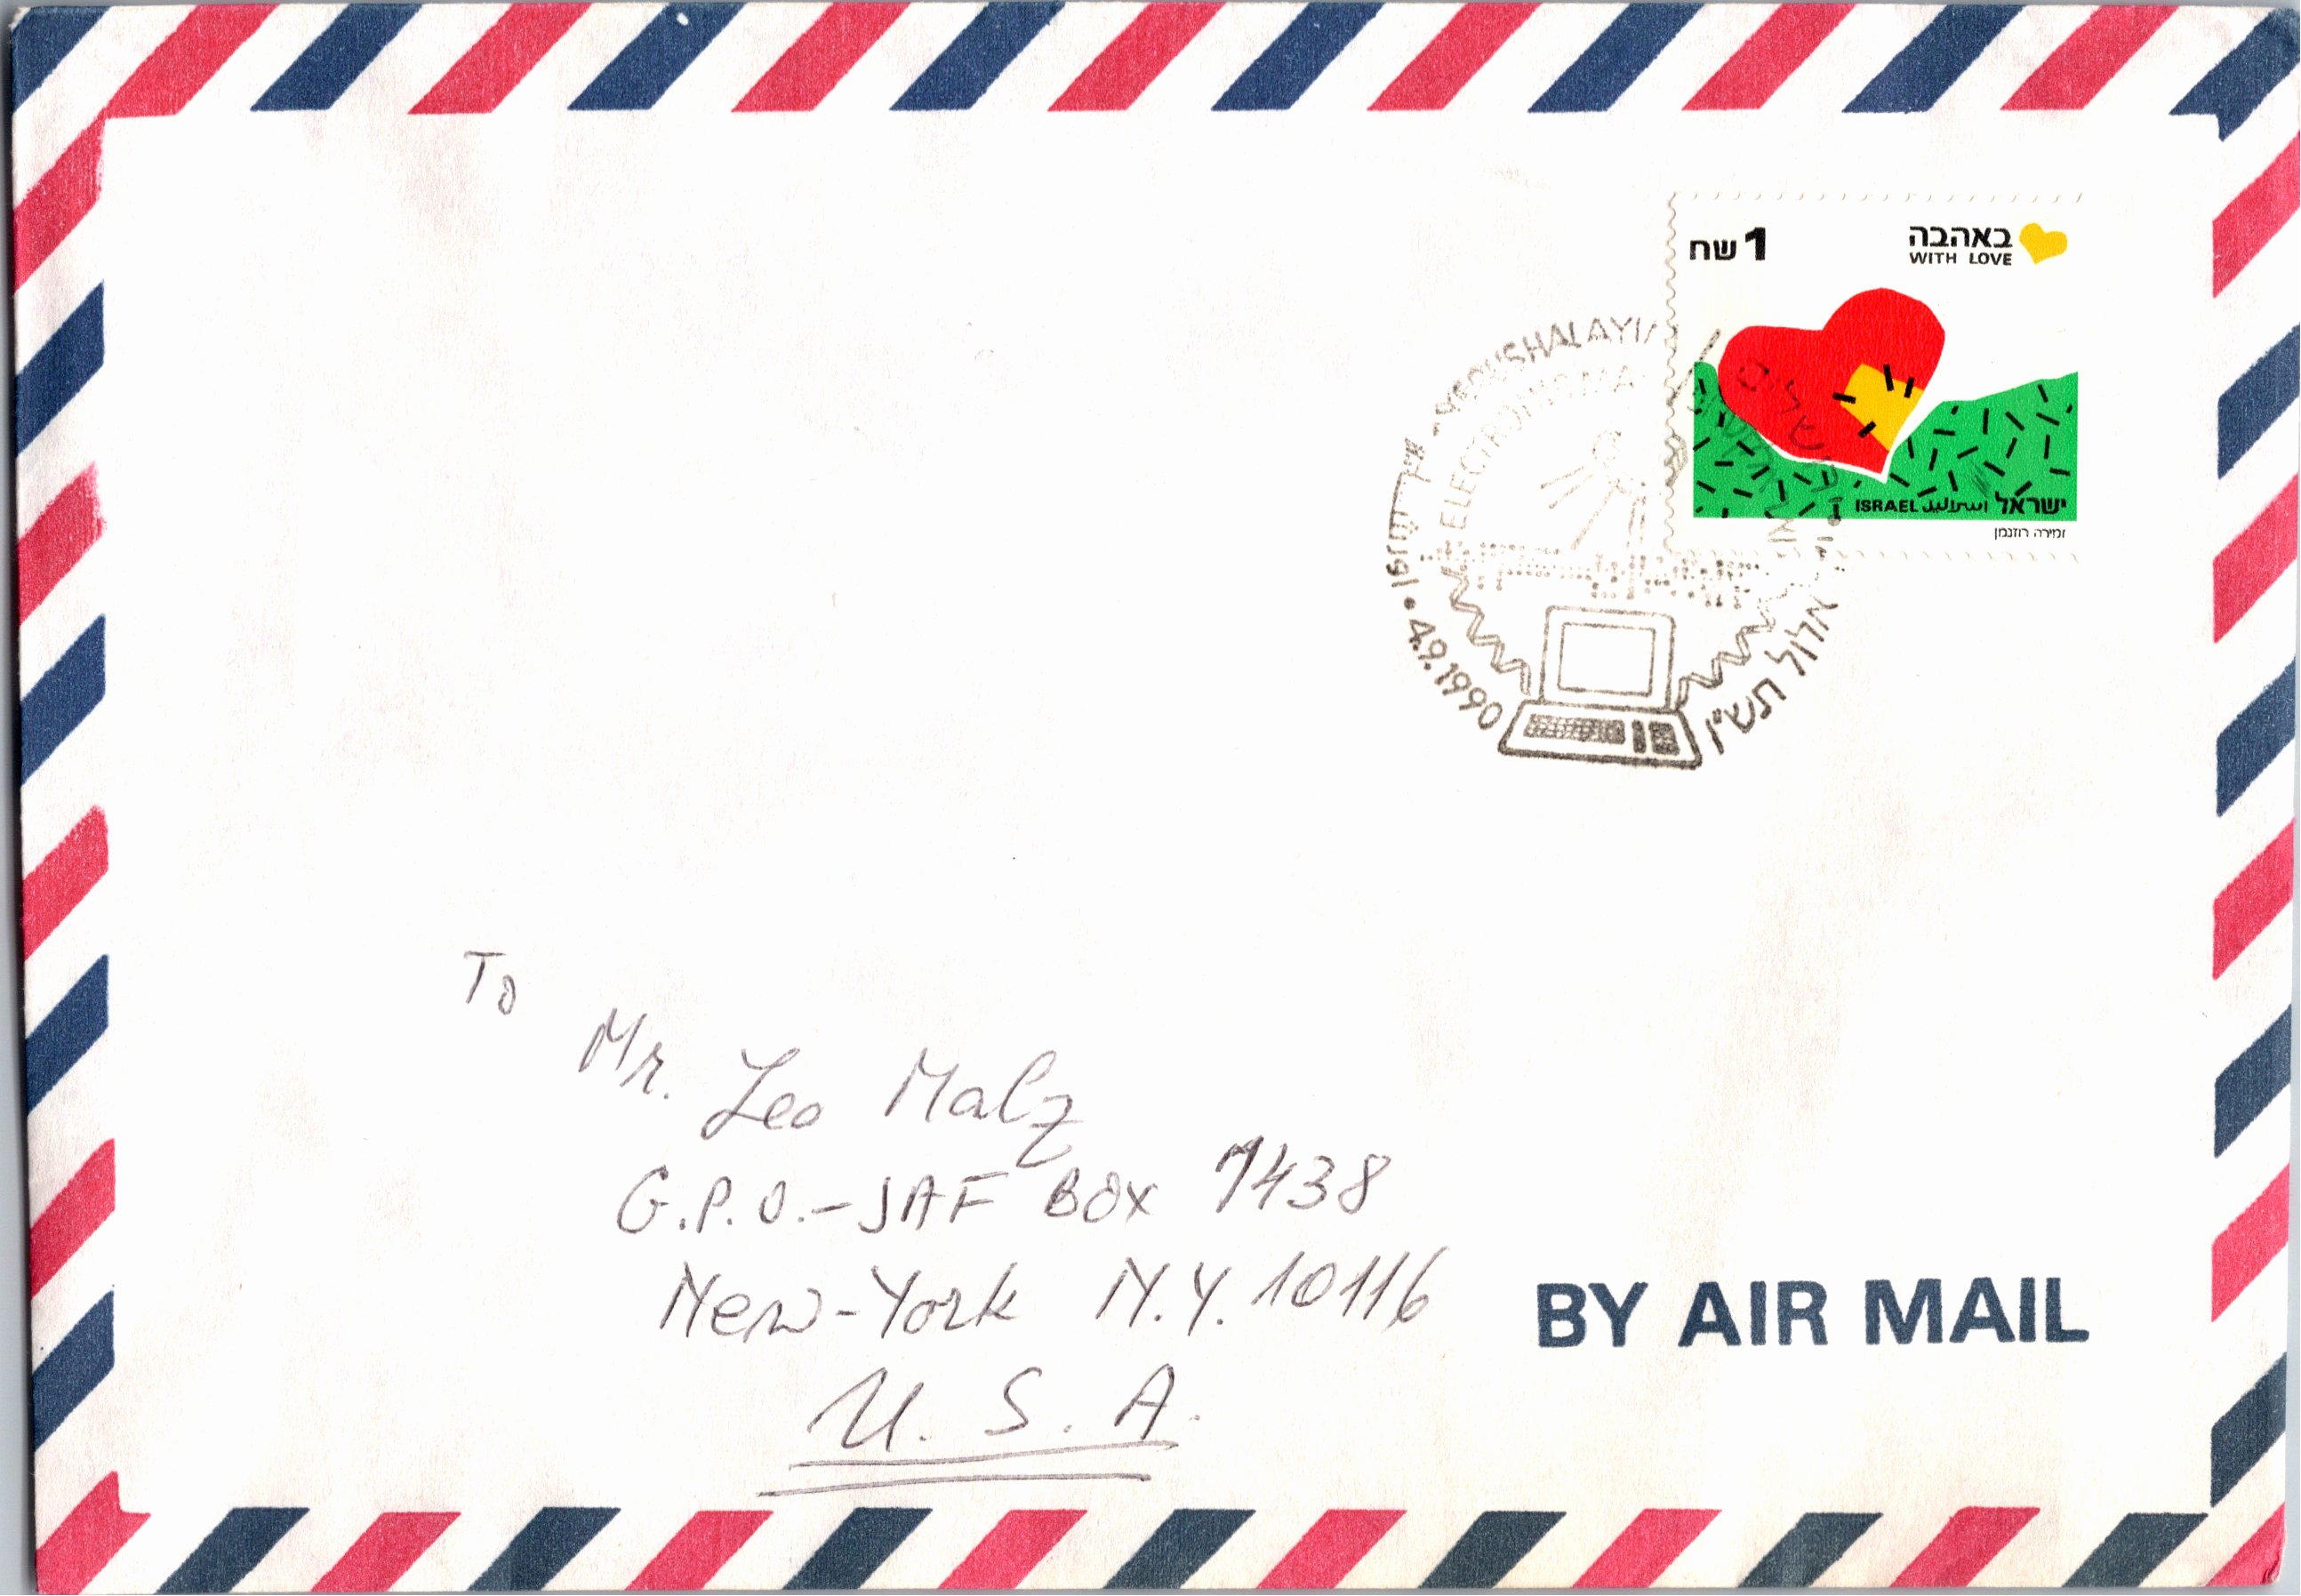 1 שח
באהבה
WITH LOVE
ISRAEL اسرائيل ישראל
זמירה רוזנמן
YERUSHALAYIM
ירושלים
ELECTRONIC MAIL
4.9.1990
אלול תש"ן
To
Mr. Leo Malz
G.P.O.-JAF BOX 7438
New-York N.Y. 10116
U.S.A.
BY AIR MAIL